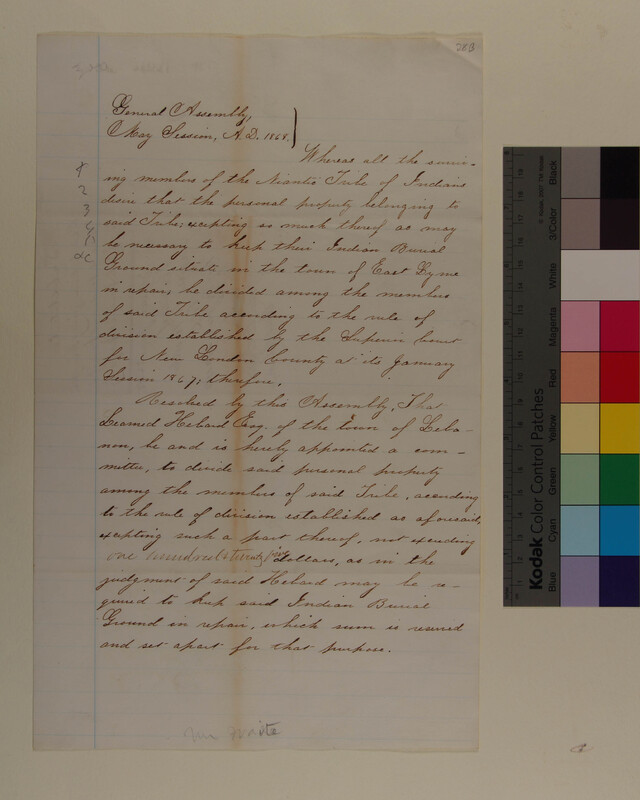 283
General Assembly,
May Session, A.D. 1868.
Whereas all the surviv-
ing members of the Niantic Tribe of Indians
desire that the personal property belonging to
said Tribe, excepting so much thereof as may
be necessary to keep their Indian Burial
Ground situate in the town of East Lyme
in repair, be divided among the members
of said Tribe according to the rule of
division established by the Superior Court
for New London County at its January
Session 1867; therefore,
Resolved by this Assembly, That
Learned Hebard Esq. of the town of Leba-
non, be and is hereby appointed a com-
mittee, to divide said personal property
among the members of said Tribe, according
to the rule of division established as aforesaid,
excepting such a part thereof, not exceeding
one hundred & twenty five dollars, as in the
judgment of said Hebard may be re-
quired to keep said Indian Burial
Ground in repair, which sum is reserved
and set apart for that purpose.
2
3
4
Kodak Color Control Patches
© Kodak, 2007
Blue Cyan Green Yellow Red Magenta White 3/Color Black